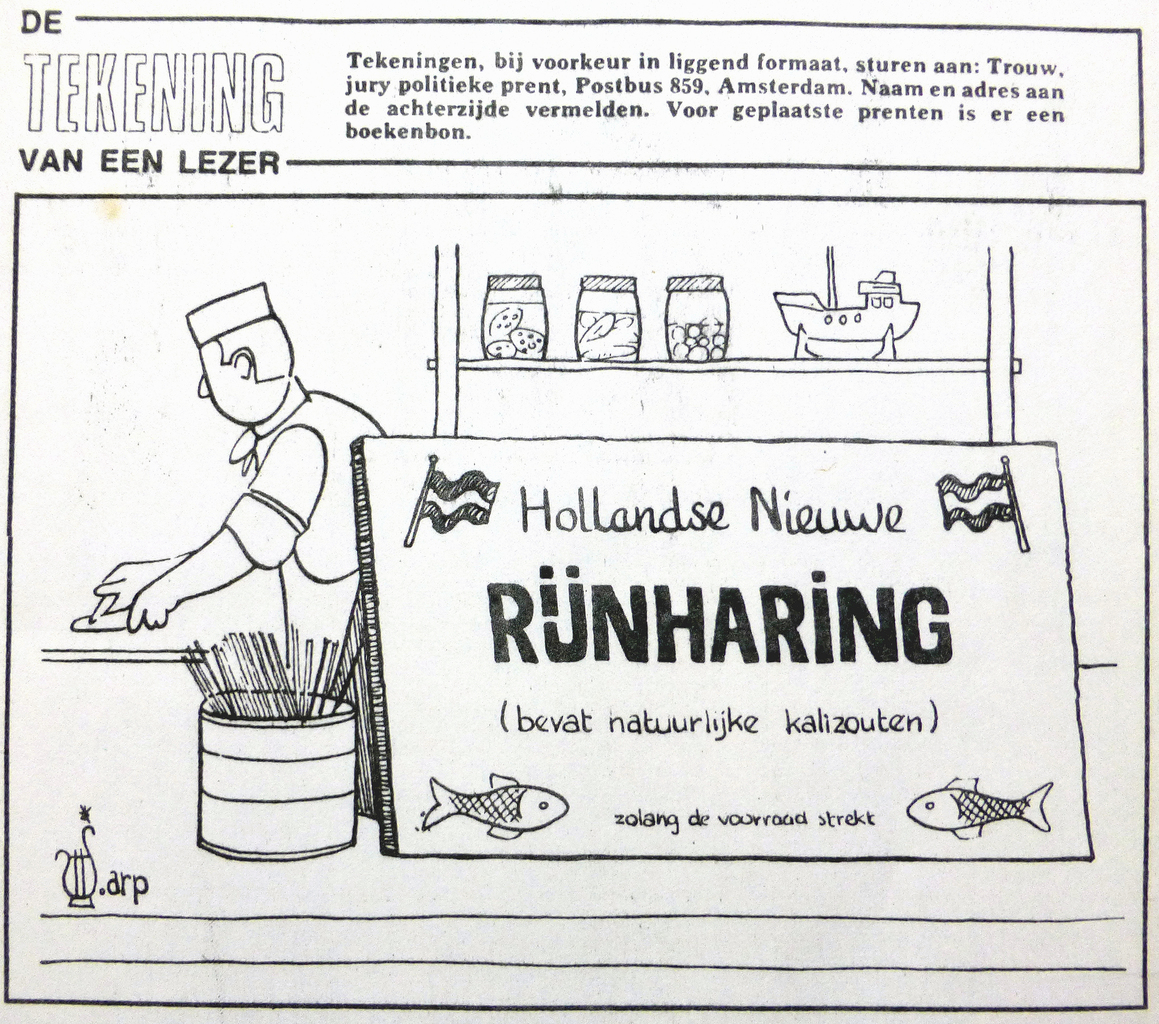 DE
TEKENING
VAN EEN LEZER
Tekeningen, bij voorkeur in liggend formaat, sturen aan: Trouw,
jury politieke prent, Postbus 859, Amsterdam. Naam en adres aan
de achterzijde vermelden. Voor geplaatste prenten is er een
boekenbon.
Hollandse Nieuwe
RIJNHARING
(bevat natuurlijke kalizouten)
zolang de voorraad strekt
.arp